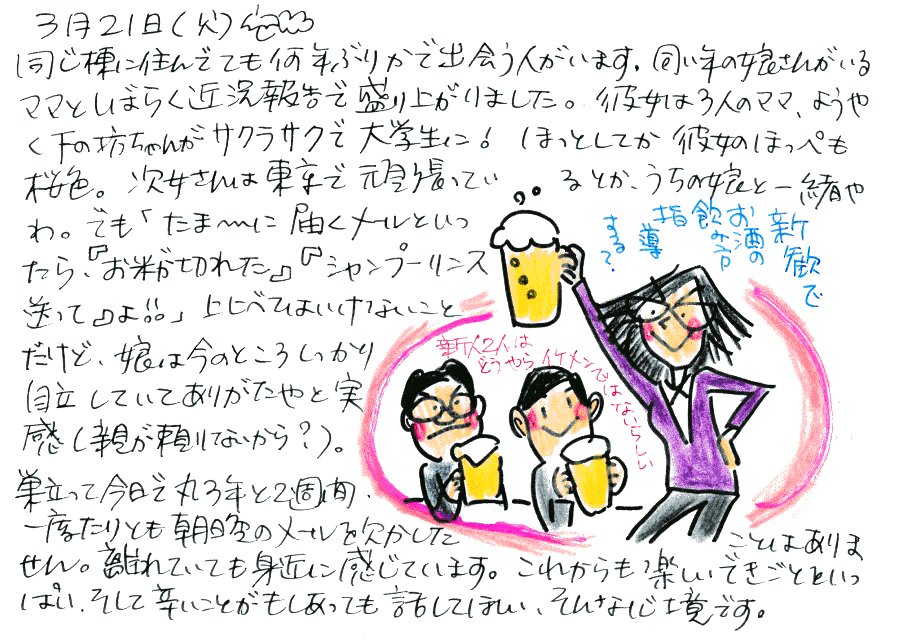 3月21日(火)
同じ棟に住んでても何年ぶりかで出会う人がいます。同い年の娘さんがいる
ママとしばらく近況報告で盛り上がりました。彼女は3人のママ、ようや
く下の坊ちゃんがサクラサクで大学生に! ほっとしてか 彼女のほっぺも
桜色。次女さんは東京で頑張ってい るとか、うちの娘と一緒や
わ。でも「たま〜に届くメールといっ
たら、『お米が切れた』『シャンプーリンス
送って』よ!!」比べてはいけないこと
だけど、娘は今のところしっかり
自立していてありがたやと実
感(親が頼りないから?)。
巣立って今日で丸3年と2週間、
一度たりとも朝晩のメールを欠かした
ことはありま
せん。離れていても身近に感じています。これからも楽しいできごとといっ
ぱい、そして辛いことがもしあっても話してほしい、そんな心境です。
新歓で
お酒の
飲み方
指導
する?
新人2人は
どうやらイケメンではないらしい